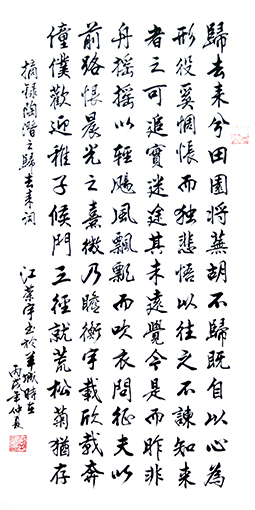 歸去来兮田園將蕪胡不歸既自以心為
形役奚惆悵而独悲悟以往之不諫知来
者之可追實迷途其未遠覺今是而昨非
舟摇摇以輕颺風飄飄而吹衣問征夫以
前路恨晨光之熹微乃瞻衡宇載欣載奔
僮僕歡迎稚子候門三徑就荒松菊猶存
摘録陶潛之歸去来词
江荣宇书於羊城時在
丙戌年仲夏